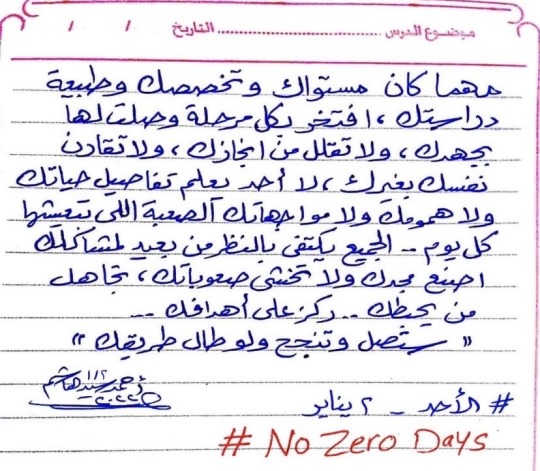 موضوع الدرس ........................ التاريخ / /
مهما كان مستواك وتخصصك وطبيعة
دراستك، افتخر بكل مرحلة وصلت لها
بجهدك، ولا تقلل من انجازك، ولا تقارن
نفسك بغيرك، لا أحد يعلم تفاصيل حياتك
ولا همومك ولا مواجهاتك الصعبة اللي تعيشها
كل يوم .. الجميع يكتفي بالنظر من بعيد لمشاكلك
اصنع مجدك ولا تخشى صعوباتك، تجاهل
من يحبطك .. ركز على أهدافك ..
" ستصل وتنجح ولو طال طريقك "
# الأحد - ٢ يناير
# No Zero Days